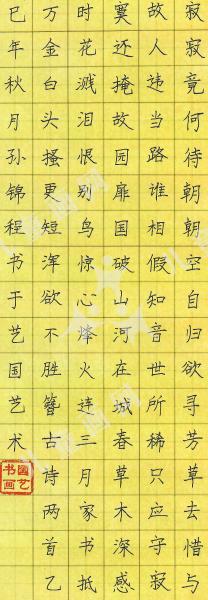 寂寂竟何待朝朝空自归欲寻芳草去惜与
故人违当路谁相假知音世所稀只应守寂
寞还掩故园扉国破山河在城春草木深感
时花溅泪恨别鸟惊心烽火连三月家书抵
万金白头搔更短浑欲不胜簪古诗两首乙
巳年秋月孙锦程书于艺国艺术
国艺
书画